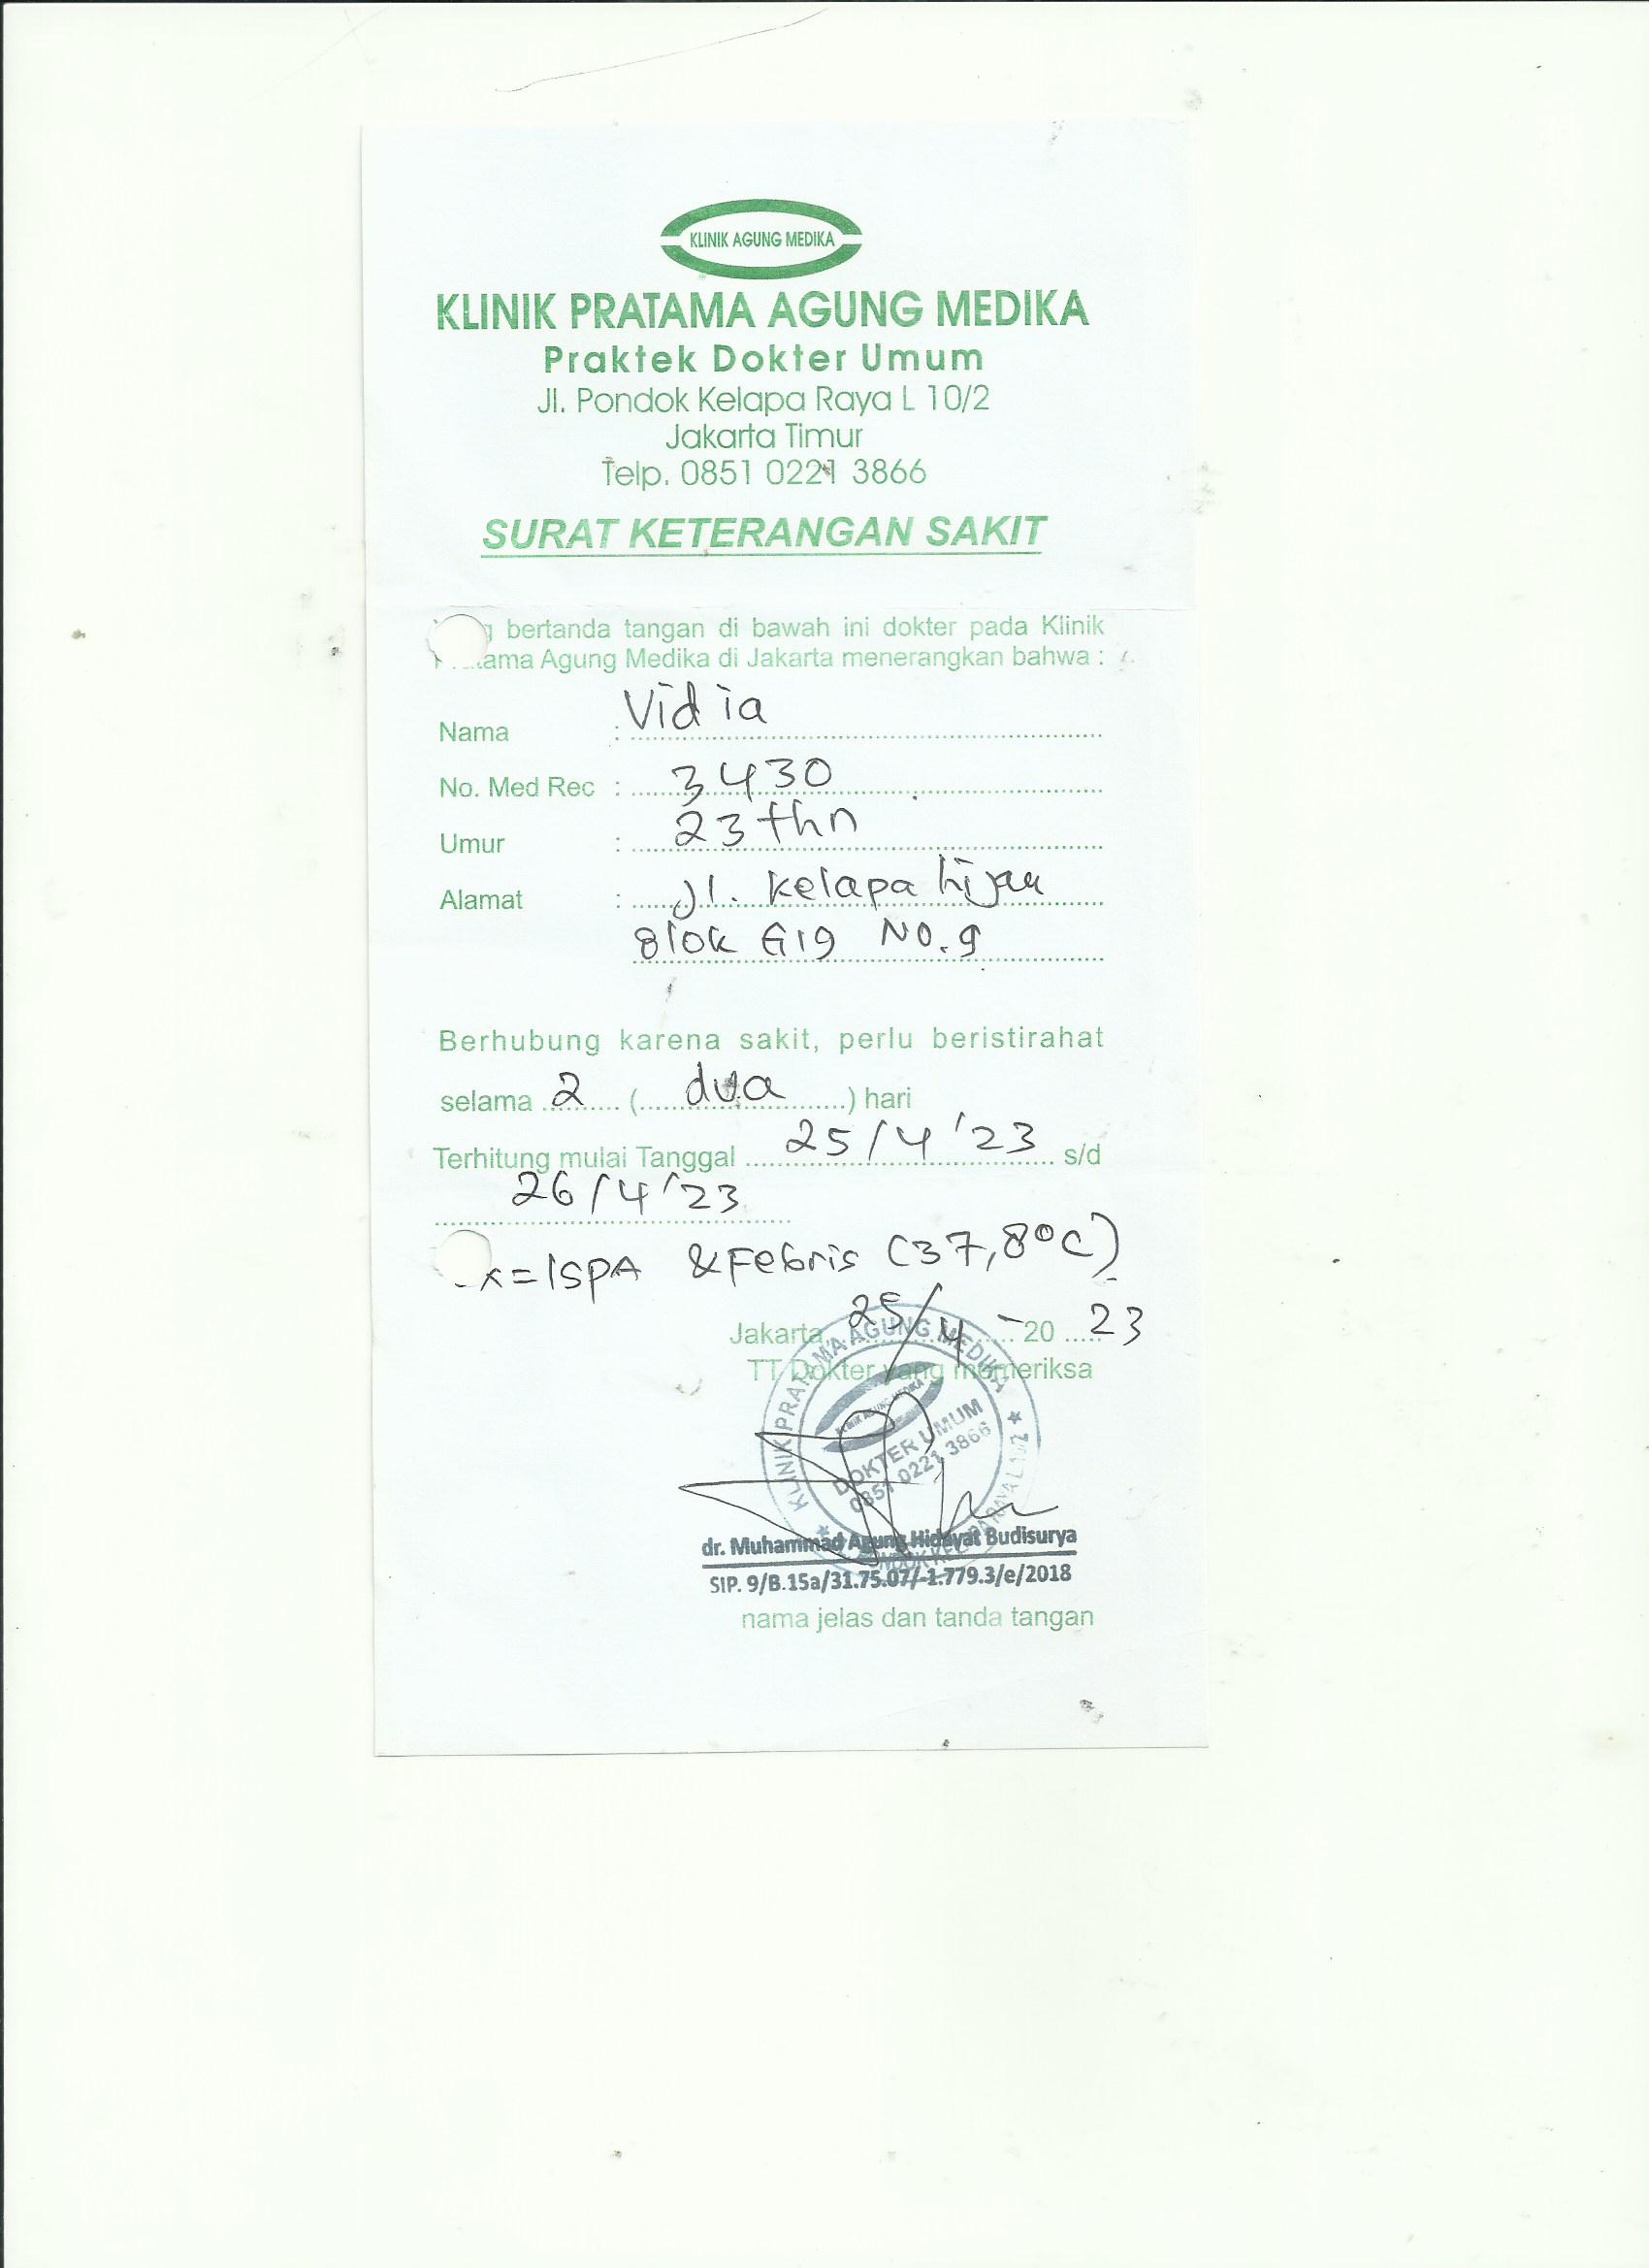 KLINIK AGUNG MEDIKA
KLINIK PRATAMA AGUNG MEDIKA
Praktek Dokter Umum
Jl. Pondok Kelapa Raya L 10/2
Jakarta Timur
Telp. 0851 0221 3866
SURAT KETERANGAN SAKIT
bertanda tangan di bawah ini dokter pada Klinik
Agung Medika di Jakarta menerangkan bahwa :
Nama : Vidia
No. Med Rec : 3430
Umur : 23 thn
Alamat : Jl. Kelapa hijau
Blok G19 No. 9
Berhubung karena sakit, perlu beristirahat
selama 2 (dua) hari
Terhitung mulai Tanggal 25/4 '23 s/d
26/4 '23
x = ISPA & Febris (37,8°C)
Jakarta 25/4 - 20 23
TT Dokter yang memeriksa
KLINIK PRATAMA AGUNG MEDIKA
KLINIK AGUNG MEDIKA
DOKTER UMUM
0851 0221 3866
dr. Muhammad Agung Hidayat Budisurya
SIP. 9/B.15a/31.75.07/-1.779.3/e/2018
nama jelas dan tanda tangan